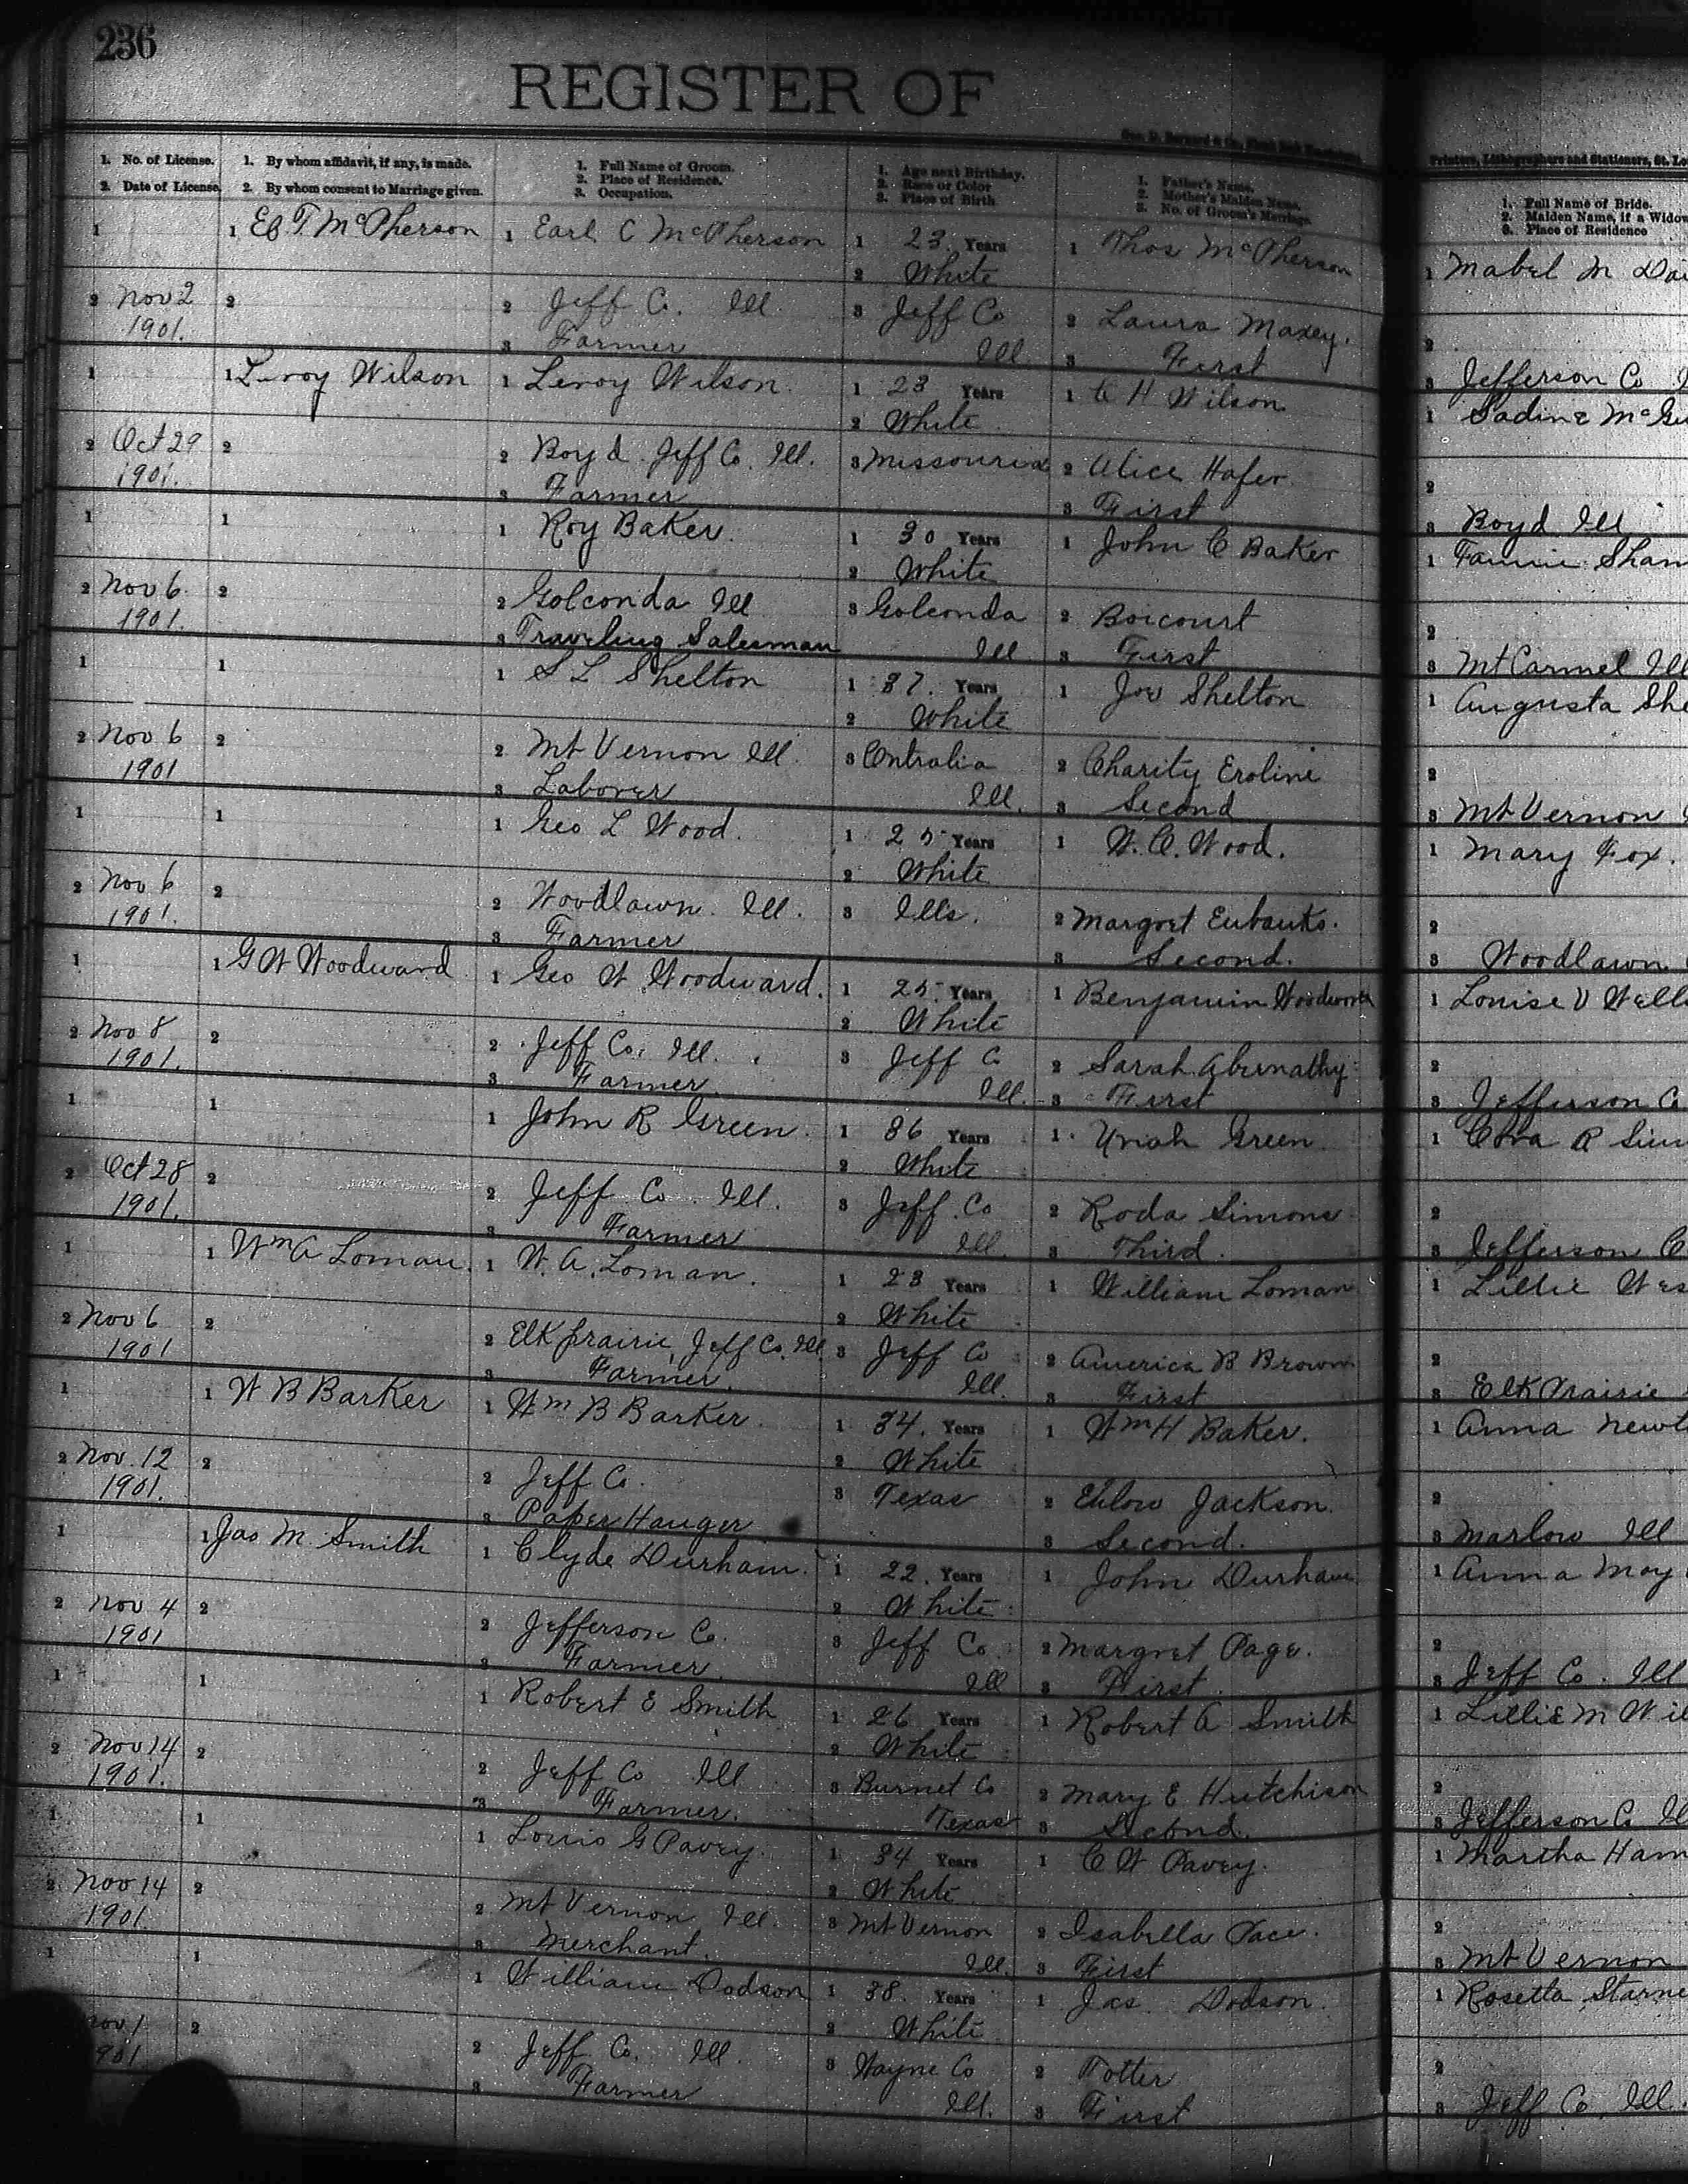 236
REGISTER OF
1. No. of License.
2. Date of License.
1. By whom affidavit, if any, is made.
2. By whom consent to Marriage given.
1. Full Name of Groom.
2. Place of Residence.
3. Occupation.
1. Age next Birthday.
2. Race or Color
3. Place of Birth
1. Father's Name.
2. Mother's Maiden Name.
3. No. of Groom's Marriage.
Printers, Lithographers and Stationers, St.
1. Full Name of Bride.
2. Maiden Name, if a Widow
3. Place of Residence
1
1 McPherson
1 Earl C McPherson
1 23 Years
1 Thos McPherson
1 Mabel M
2 White
2 Nov 2
1901.
2
2 Jeff C. Ill
3 Jeff Co
Ill
2 Laura Maxey.
2
3 Farmer
3 First
3 Jefferson Co
1
1 Leroy Wilson
1 Leroy Wilson
1 23 Years
1 C H Wilson
1
2 White
2 Oct 29
1901.
2
2 Boyd Jeff Co. Ill.
3
2 Alice Hafer
2
3 Farmer
3 First
3 Boyd Ill
1
1
1 Roy Baker.
1 30 Years
1 John C Baker
1 Fannie
2 White
2 Nov 6.
1901.
2
2 Golconda Ill
3 Golconda
Ill
2 Boicourt
2
3 Traveling Salesman
3 First
3 Mt Carmel Ill
1
1
1 S L Shelton
1 37. Years
1 Joe Shelton
1 Augusta
2 White
2 Nov 6
1901
2
2 Mt Vernon Ill.
3 Centralia
Ill.
2 Charity Eroline
2
3 Laborer
3 Second
3 Mt Vernon
1
1
1 Geo L Wood.
1 25 Years
1 W. C. Wood.
1 Mary Fox.
2 White
2 Nov 6
1901.
2
2 Woodlawn. Ill.
3 Ills.
2 Margret Eubanks.
2
3 Farmer
3 Second.
3 Woodlawn
1
1 G W Woodward
1 Geo W Woodward.
1 25 Years
1 Benjamin
1 Louise V
2 White
2 Nov 8
1901.
2
2 Jeff Co. Ill.
3 Jeff C
Ill.
2 Sarah Abernathy
2
3 Farmer
3 First
3 Jefferson C
1
1
1 John R Green.
1 36 Years
1 Uriah Green
1
2 White
2 Oct 28
1901.
2
2 Jeff Co. Ill.
3 Jeff. Co
Ill.
2 Roda Simons
2
3 Farmer
3 Third.
3 Jefferson C
1
1 Wm A Loman.
1 W. A. Loman.
1 23 Years
1 William Loman
1 Lillie
2 White
2 Nov 6
1901
2
2 Elk prairie, Jeff Co. Ill
3 Jeff Co
Ill.
2 America B Brown
2
3 Farmer.
3 First
3 Elk Prairie
1
1 W B Barker
1 Wm B Barker.
1 34. Years
1 Wm H Baker.
1 Anna
2 White
2 Nov. 12
1901.
2
2 Jeff Co.
3 Texas
2 Jackson.
2
3 Paper Hanger
3 Second.
3 Marlow Ill
1
1 Jas M. Smith
1 Clyde Durham.
1 22. Years
1 John Durham
1 Anna May
2 White
2 Nov 4
1901
2
2 Jefferson Co.
3 Jeff Co.
Ill
2 Margret Page.
2
3 Farmer.
3 First
3 Jeff Co. Ill
1
1
1 Robert E Smith
1 26 Years
1 Robert A Smith
1 Lillie M
2 White
2 Nov 14
1901.
2
2 Jeff Co Ill
3 Burnet Co
Texas
2 Mary E Hutchison
2
3 Farmer.
3 Second.
3 Jefferson Co Il
1
1
1 Louis G Pavey.
1 34 Years
1 C W Pavey.
1 Martha
2 White
2 Nov 14
1901
2
2 Mt Vernon Ill.
3 Mt Vernon
Ill.
2 Isabella Pace.
2
3 Merchant.
3 First
3 Mt Vernon
1
1
1 William Dodson
1 38. Years
1 Jas. Dodson.
1 Rosetta
2 White
Nov 1
901
2
2 Jeff Co. Ill.
3 Wayne Co
Ill.
2 Potter
2
3 Farmer
3 First
3 Jeff Co. Ill.